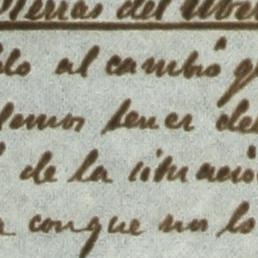 Tierras del Uber
do al cambio q
demos tener de
de la situació
a conque no lo